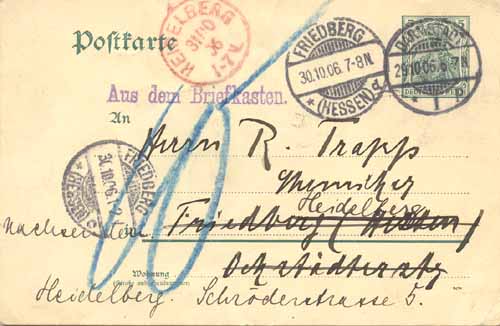 Postkarte
HEIDELBERG
31 10
06
1-7V.
FRIEDBERG
30.10.06.7-8N.
* (HESSEN) d
DARMSTADT
29.10.06.6-7N.
* 1 p
5
Aus dem Briefkasten.
An
Herrn R. Trapp
Chemiker
Heidelberg
Nachsenden. Friedberg (Hessen)
FRIEDBERG
30.10.06.
(HESSEN)
Wohnung
(Straße und Hausnummer)
Heidelberg. Schröderstrasse 5.